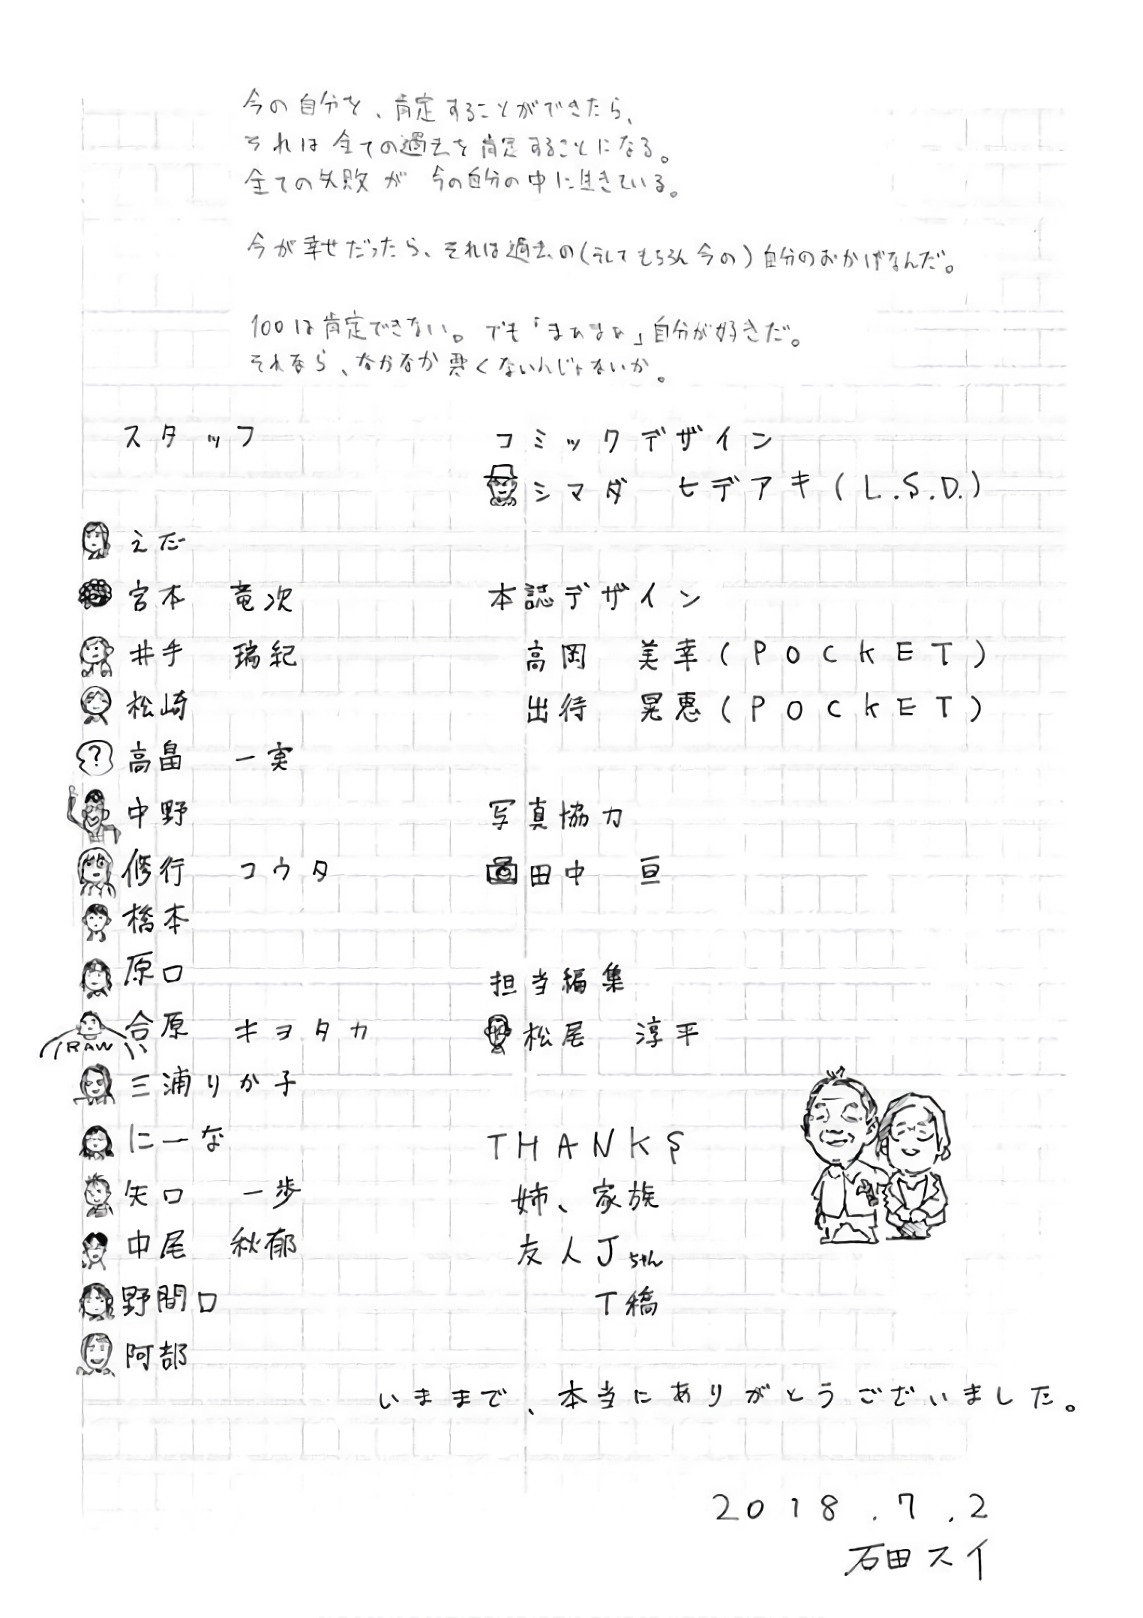 今の自分を、肯定することができたら、
それは全ての過去を肯定することになる。
全ての失敗が 今の自分の中に生きている。
今が幸せだったら、それは過去の(そしてもちろん今の)自分のおかげなんだ。
100は肯定できない。でも「まぁまぁ」自分が好きだ。
それなら、なかなか悪くないんじゃないか。
スタッフ
えだ
宮本 竜次
井手 瑞紀
松崎
?
高畠 一実
中野
修行 コウタ
橋本
原口
RAW
合原 キヨタカ
三浦りか子
にーな
矢口 一歩
中尾 秋郁
野間口
阿部
コミックデザイン
シマダ ヒデアキ(L.S.D.)
本誌デザイン
高岡 美幸(POCKET)
出待 晃恵(POCKET)
写真協力
田中 亘
担当編集
松尾 淳平
THANKS
姉、家族
友人Jちゃん
T橋
いままで、本当にありがとうございました。
2018.7.2
石田スイ